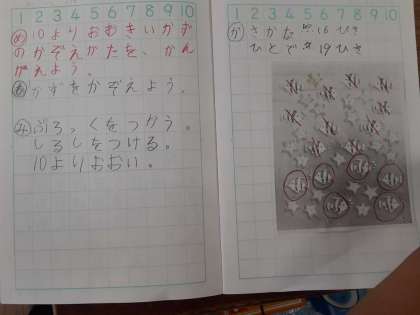 1 2 3 4 5 6 7 8 9 10
め 10よりおおきいかず
のかぞえかたを、かん
がえよう。
かずをかぞえよう。
み ぶろっくをつかう。
しるしをつける。
10よりおおい。
1 2 3 4 5 6 7 8 9 10
か さかな 16ひき
ひとで 19ひき